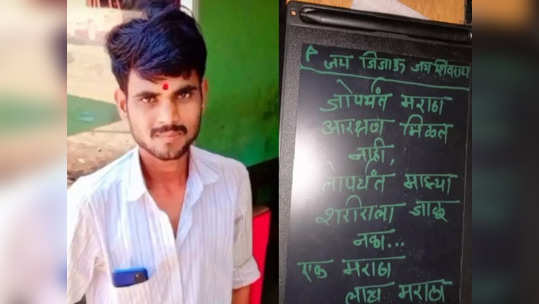 जय जिजाऊ जय शिवराय
जोपर्यंत मराठा
आरक्षण मिळत
नाही,
तोपर्यंत माझ्या
शरीराला जाळू
नका...
एक मराठा
लाख मराठा